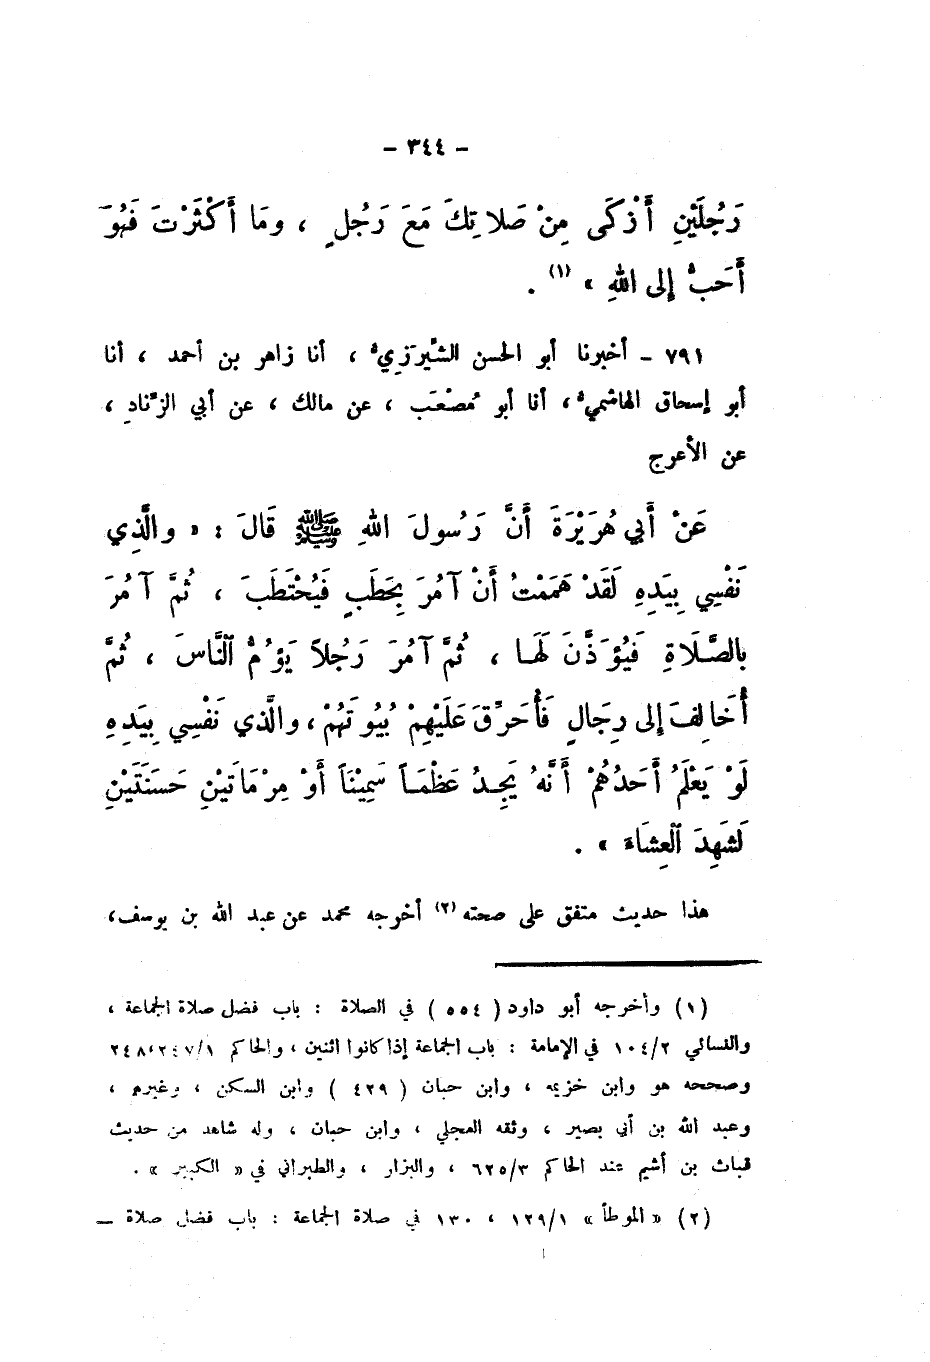 - ٣٤٤ -
رَجُلَيْنِ أَزْكَى مِنْ صَلاتِكَ مَعَ رَجُلٍ ، ومَا أَكْثَرْتَ فَهُوَ
أَحَبُّ إلى اللهِ » (١) .
٧٩١ ـ أخبرنا أبو الحسن الشِّيرَزيُّ ، أنا زاهر بن أحمد ، أنا
أبو إسحاق الهاشميُّ ، أنا أبو مُصْعَب ، عن مالك ، عن أبي الزِّنادِ ،
عن الأعرج
عَنْ أَبي هُرَيْرَةَ أَنَّ رَسُولَ اللهِ ﷺ قَالَ : « والَّذِي
نَفْسِي بِيَدِهِ لَقَدْ هَمَمْتُ أَنْ آمُرَ بِحَطَبٍ فَيُحْتَطَبَ ، ثُمَّ آمُرَ
بِالصَّلَاةِ فَيُؤَذَّنَ لَهَا ، ثُمَّ آمُرَ رَجُلاً يَؤُمُّ ٱلنَّاسَ ، ثُمَّ
أُخَالِفَ إلى رِجَالٍ فَأُحَرِّقَ عَلَيْهِمْ بُيُوتَهُمْ ، والَّذي نَفْسِي بِيَدِهِ
لَوْ يَعْلَمُ أَحَدُهُمْ أَنَّهُ يَجِدُ عَظْمَاً سَمِيْنَاً أَوْ مِرْمَاتَيْنِ حَسَنَتَيْنِ
لَشَهِدَ ٱلعِشَاءَ » .
هذا حديث متفق على صحته (٢) أخرجه محمد عن عبد الله بن يوسف ،
(١) وأخرجه أبو داود ( ٥٥٤ ) في الصلاة : باب فضل صلاة الجماعة ،
والنسائي ١٠٤/٢ في الإمامة : باب الجماعة إذا كانوا اثنين ، والحاكم ٢٤٧/١، ٢٤٨
وصححه هو وابن خزيمة ، وابن حبان ( ٤٢٩ ) وابن السكن ، وغيرهم ،
وعبد الله بن أبي بصير ، وثقه العجلي ، وابن حبان ، وله شاهد من حديث
قباث بن أشيم عند الحاكم ٦٢٥/٣ ، والبزار ، والطبراني في « الكبير » .
(٢) « الموطأ » ١٢٩/١ ، ١٣٠ في صلاة الجماعة : باب فضل صلاة ـ